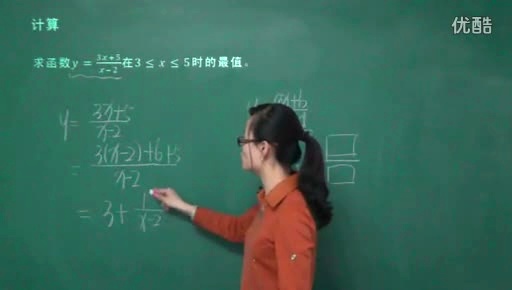 计算
优酷
求函数y=\frac{3x+5}{x-2}在3≤x≤5时的最值。
y=\frac{3x+5}{x-2}
=\frac{3(x-2)+6+5}{x-2}
=3+\frac{1}{x-2}